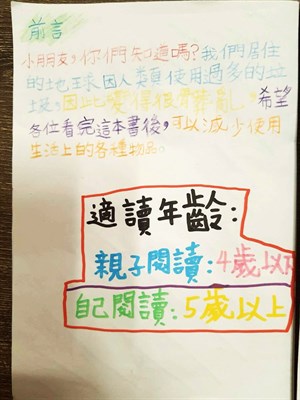 前言
小朋友,你們知道嗎?我們居住
的地球因人類使用過多的垃
圾,因此變得很髒亂,希望
各位看完這本書後,可以減少使用
生活上的各種物品。
適讀年齡:
親子閱讀:4歲以下
自己閱讀:5歲以上